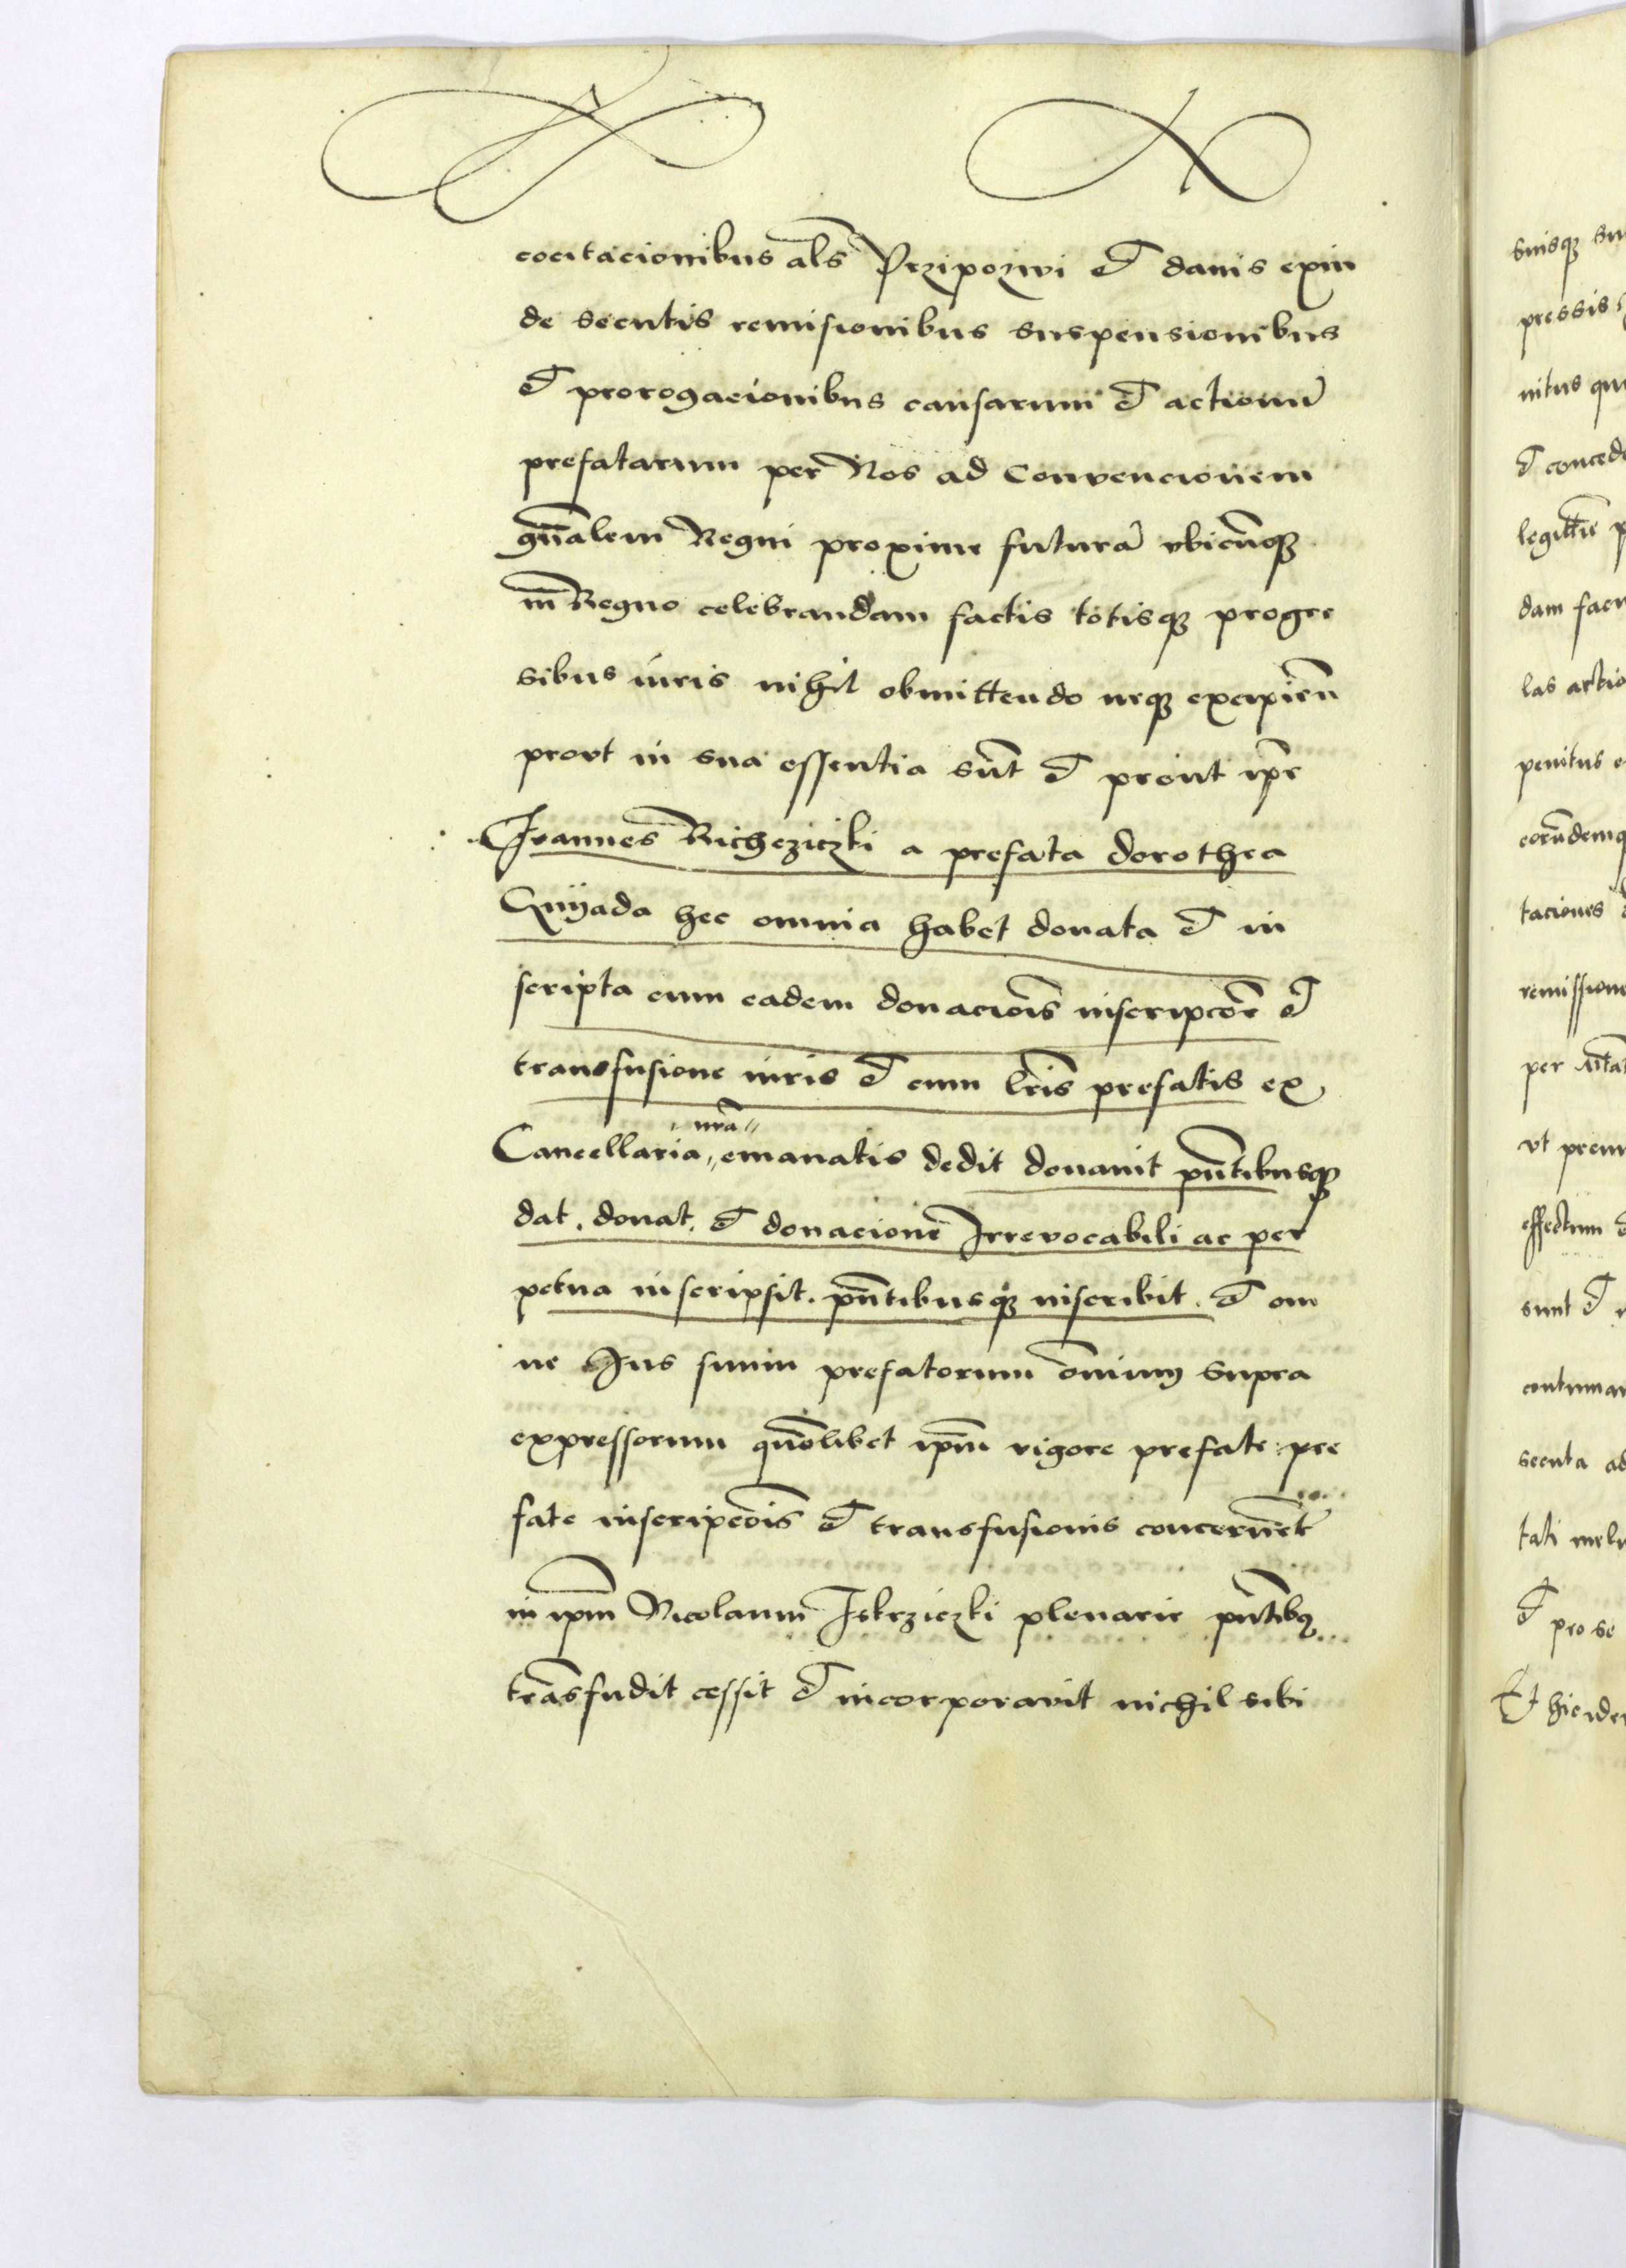 cocitacionibus als Przipozwi et damis exin
de secutis remisionibus suspensionibus
et prorogacionibus causarum et actionū
prefatarum per Nos ad Convencionem
gnālem Regni proxime futurā vbicunqz
in Regno celebrandam factis totisqz progre
sibus iuris nihil obmittendo neqz excipien̄
prout in sua essentia sūnt et prout ipe
Joannes Richcziczki a prefata dorothea
Gnyada hec omnia habet donata et in
scripta cum eadem donaciois inscripcōe et
transfusione iuris et cum lris prefatis ex
Cancellaria nrā emanatis dedit donauit pntibusqz
dat. donat. et donacione Irrevocabili ac per
petua inscripsit. pntibusqz inscribit. et om
ne Jus suum prefatorum omnium supra
expressorum quomolibet ipm vigore prefate pre
fate inscripcōis et transfusionis concernēt
in ipm Nicolaum Iskrziczki plenarie pntibus
trāsfudit cessit et incorporavit nichil sibi
suisqz su
pressis
nitus qu
et conced
legittīe p
dam facu
las actio
penitus e
eorūdemq
taciones
remissione
per
vt prem
effectum
sunt et
contumac
secuta ad
tati mel
et pro se
Et hic ide